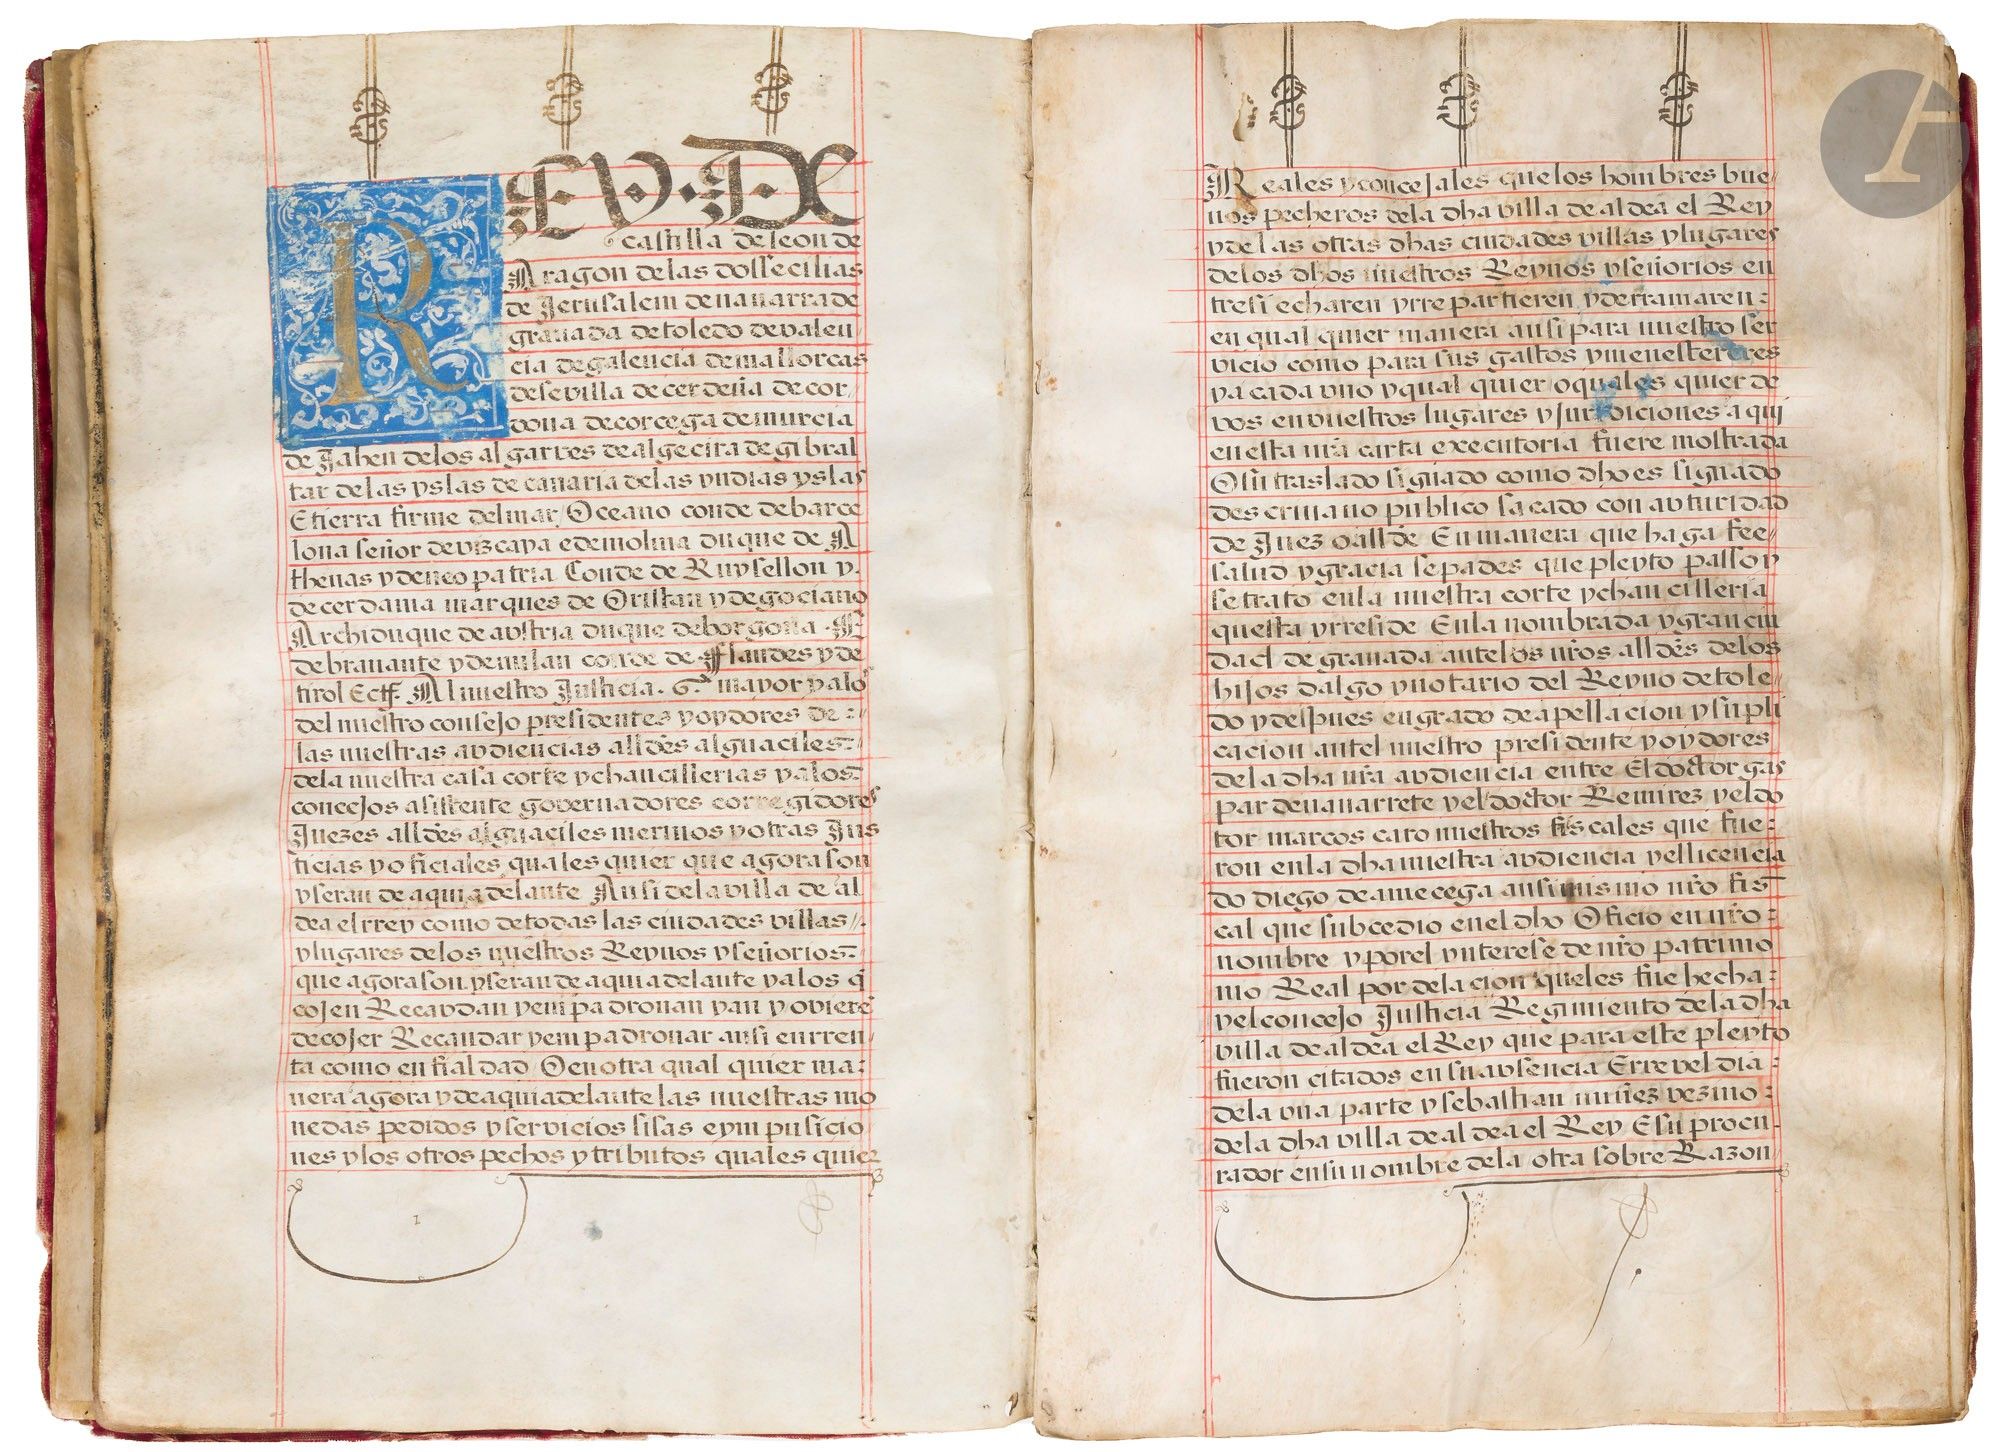 REY·DE
castilla de leon de
Aragon de las dos secilias
de Jerusalem de nauarra de
granada de toledo de valen
cia de galencia de mallorcas
de sevilla de cerdeña de cor-
doua de corcega de murcia
de Jahen de los algarves de algecira de gibral
tar de las yslas de canaria de las yndias yslas
E tierra firme del mar Oceano conde de barce
lona señor de vizcaya e de molina duque de A
thenas y de neopatria Conde de Ruysellon y
de cerdania marques de Oristan y de gociano
Archiduque de avstria duque de borgoña · E
de brauante y de milan conde de fflandes y de
tirol Ectͣ. Al nuestro Justicia. mayor y a los
del nuestro consejo presidentes y oydores de
las nuestras avdiencias alldes alguaciles
de la nuestra casa corte y chancillerias y a los
concejos asistente governadores corregidores
Juezes alldes alguaciles merinos y otras Jus
ticias y oficiales quales quier que agora son
y seran de aqui adelante Ansi de la villa de al
dea el rrey como de todas las ciudades villas
y lugares de los nuestros Reynos y señorios
que agora son y seran de aqui adelante y a los q̃
cojen Recavdan y empadronan y an y oviere
de cojer Recaudar y empadronar ansi en rren
ta como en fialdad O en otra qual quier ma
nera agora y de aqui adelante las nuestras mo
nedas pedidos y servicios sisas e ymposicio
nes y los otros pechos y tributos quales quier
1
Reales y concejales que los hombres bue
nos pecheros de la dha villa de aldea el Rey
y de las otras dhas ciudades villas y lugares
de los dhos nuestros Reynos y señorios en
tre si echaren y rrepartieren y derramaren
en qual quier manera ansi para nuestro ser
vicio como para sus gastos y menestereres
y a cada vno y qual quier o quales quier de
vos en vuestros lugares y jurdiciones a qui
en esta nr̃a carta executoria fuere mostrada
O su traslado signado como dho es signado
descriuano publico sacado con avturidad
de Juez o allde En manera que haga fee
salud y gracia sepades que pleyto passo y
se trato en la nuestra corte y chancilleria
questa y rreside En la nombrada y gran ciu
dad de granada ante los nr̃os alldes de los
hijos dalgo y notario del Reyno de tole
do y despues en grado de apellacion y supli
cacion antel nuestro presidente y oydores
de la dha nr̃a avdiencia entre El doctor gas
par de nauarrete y el doctor Remirez y el do
tor marcos caro nuestros fiscales que fue
ron en la dha nuestra avdiencia y el licencia
do diego de amecega ansimismo nr̃o fis
cal que subcedio en el dho Oficio en nr̃o
nombre y por el ynterese de nr̃o patrimo
nio Real por delacion que les fue hecha
y el concejo Justicia Regimiento de la dha
villa de aldea el Rey que para este pleyto
fueron citados en su avsencia E rreveldia
de la vna parte y sebastian nuñez vezino
de la dha villa de aldea el Rey E su procu
rador en su nombre de la otra sobre Razon